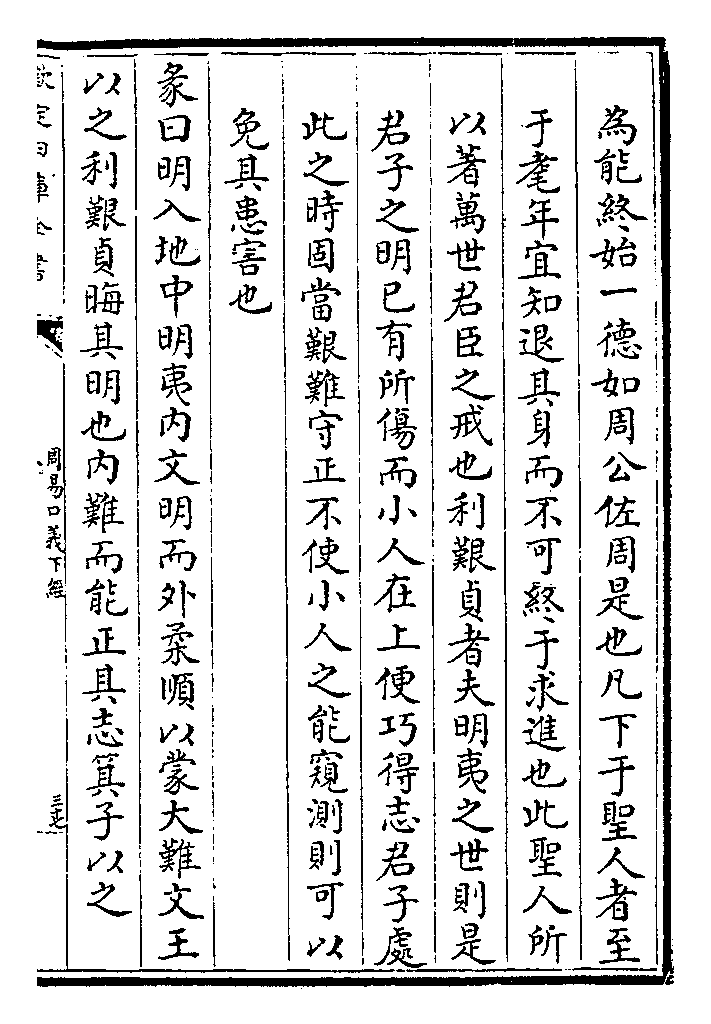 為能終始一德如周公佐周是也凡下于聖人者至
于耄年宜知退其身而不可終于求進也此聖人所
以著萬世君臣之戒也利艱貞者夫明夷之世則是
君子之明已有所傷而小人在上便巧得志君子處
此之時固當艱難守正不使小人之能窺測則可以
免其患害也
彖曰明入地中明夷内文明而外柔順以蒙大難文王
以之利艱貞晦其明也内難而能正其志箕子以之
欽定四庫全書
周易口義下經
三七